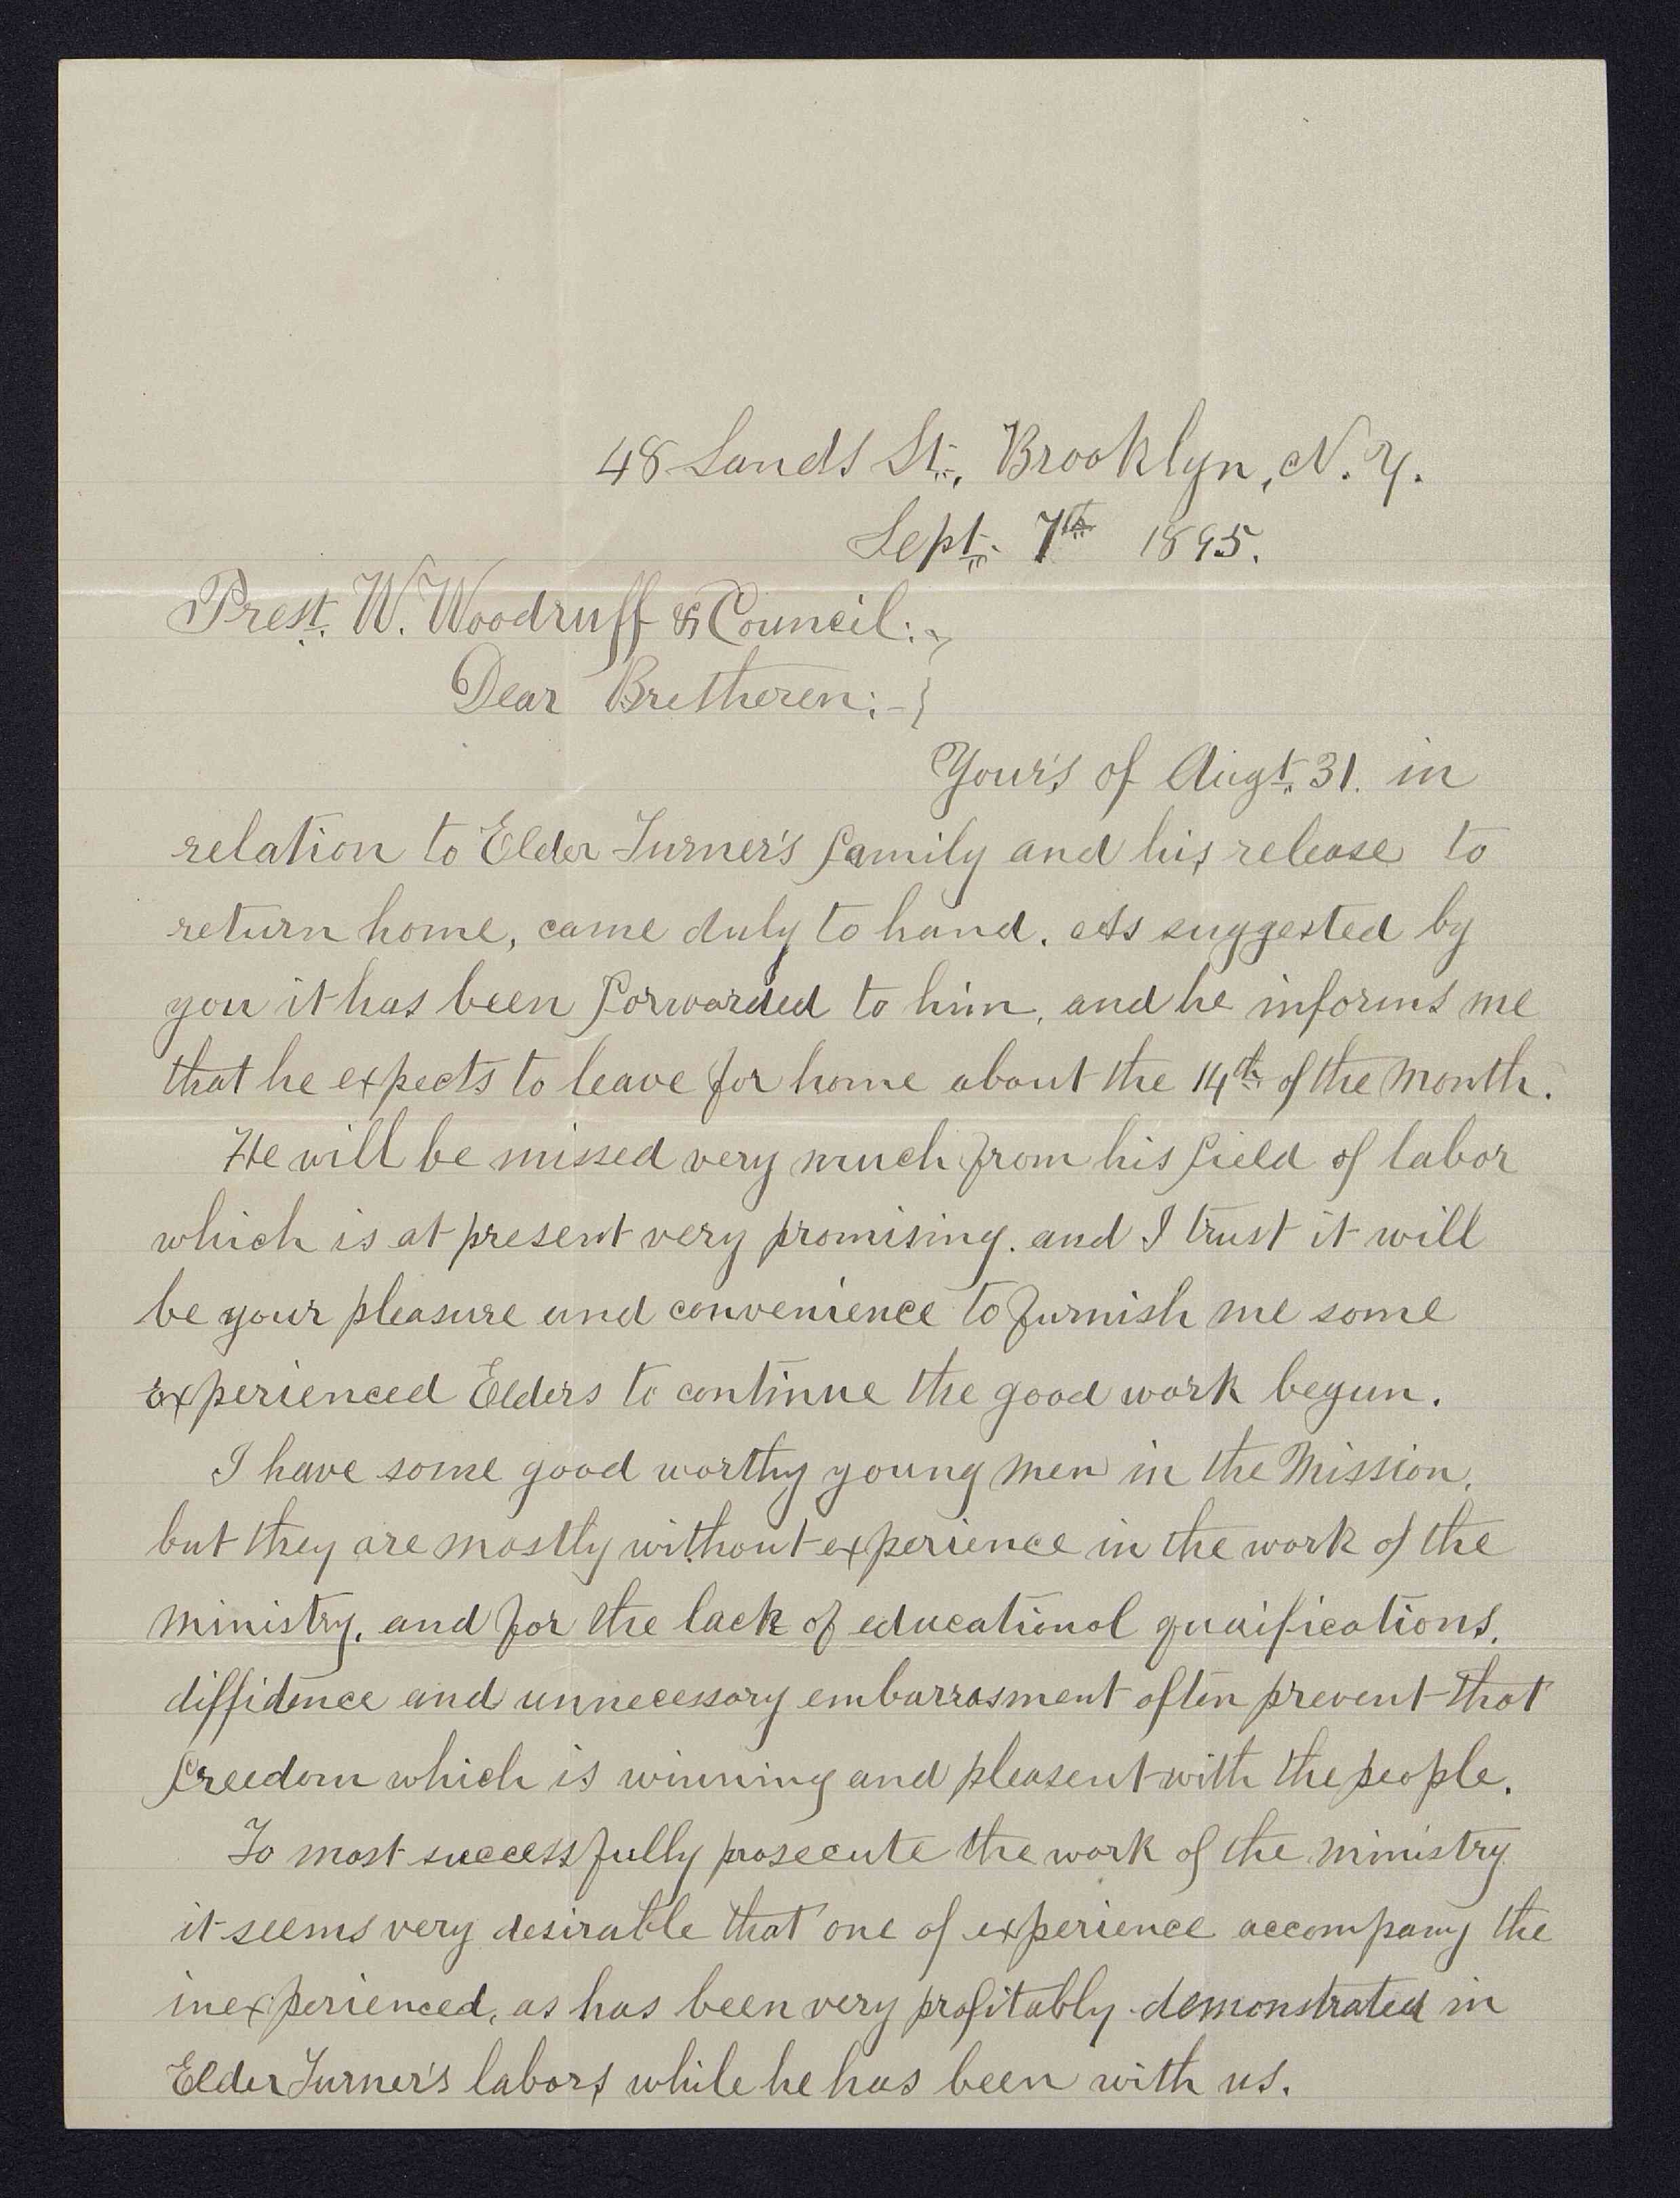 48 Sands St., Brooklyn, N.Y.
Sept. 7th 1895.
Prest. W. Woodruff & Council:-
Dear Bretheren:-
Your's of Augt. 31. in
relation to Elder Turner's family and his release to
return home, came duly to hand. As suggested by
you it has been forwarded to him, and he informs me
that he expects to leave for home about the 14th of the Month.
He will be missed very much from his field of labor
which is at present very promising. and I trust it will
be your pleasure and convenience to furnish me some
experienced Elders to continue the good work begun.
I have some good worthy young men in the Mission,
but they are mostly without experience in the work of the
ministry, and for the lack of educational quaifications,
diffidence and unnecessary embarrasment often prevent that
freedom which is winning and pleasent with the people.
To most successfully prosecute the work of the ministry
it seems very desirable that one of experience accompany the
inexperienced, as has been very profitably demonstrated in
Elder Turner's labors while he has been with us.